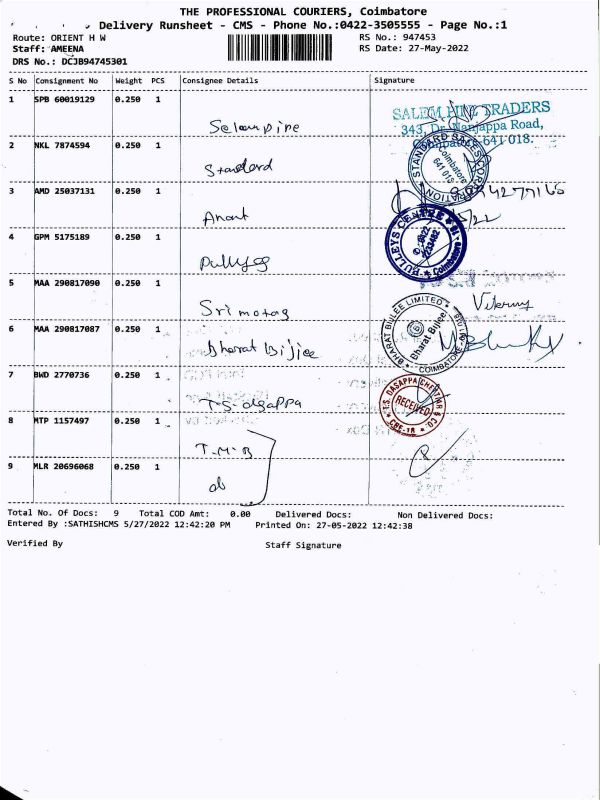 THE PROFESSIONAL COURIERS, Coimbatore
Delivery Runsheet - CMS - Phone No.:0422-3505555 - Page No.:1
Route: ORIENT H W RS No.: 947453
Staff: AMEENA RS Date: 27-May-2022
DRS No.: DCJB94745301
S No Consignment No Weight PCS Consignee Details Signature
1 SPB 60019129 0.250 1
SALEM PINE TRADERS
343, Dr. Nanjappa Road,
Coimbatore 641 018.
2 NKL 7874594 0.250 1
Standard
STANDARD SALES CORPORATION
Coimbatore
641 018
3 AMD 25037131 0.250 1
Anant
4 GPM 5175189 0.250 1
PULLEYS CENTRE
Coimbatore
5 MAA 290817090 0.250 1
6 MAA 290817087 0.250 1
Bharat Bijlee
BHARAT BIJLEE LIMITED
Bharat Bijlee
COIMBATORE
7 BWD 2770736 0.250 1
T.S. dasappa
T.S. DASAPPA CHETTIAR & CO
RECEIVED
CBE-18
8 MTP 1157497 0.250 1
T.M.B
9 MLR 20696068 0.250 1
do
Total No. Of Docs: 9 Total COD Amt: 0.00 Delivered Docs: Non Delivered Docs:
Entered By :SATHISHCMS 5/27/2022 12:42:20 PM Printed On: 27-05-2022 12:42:38
Verified By Staff Signature